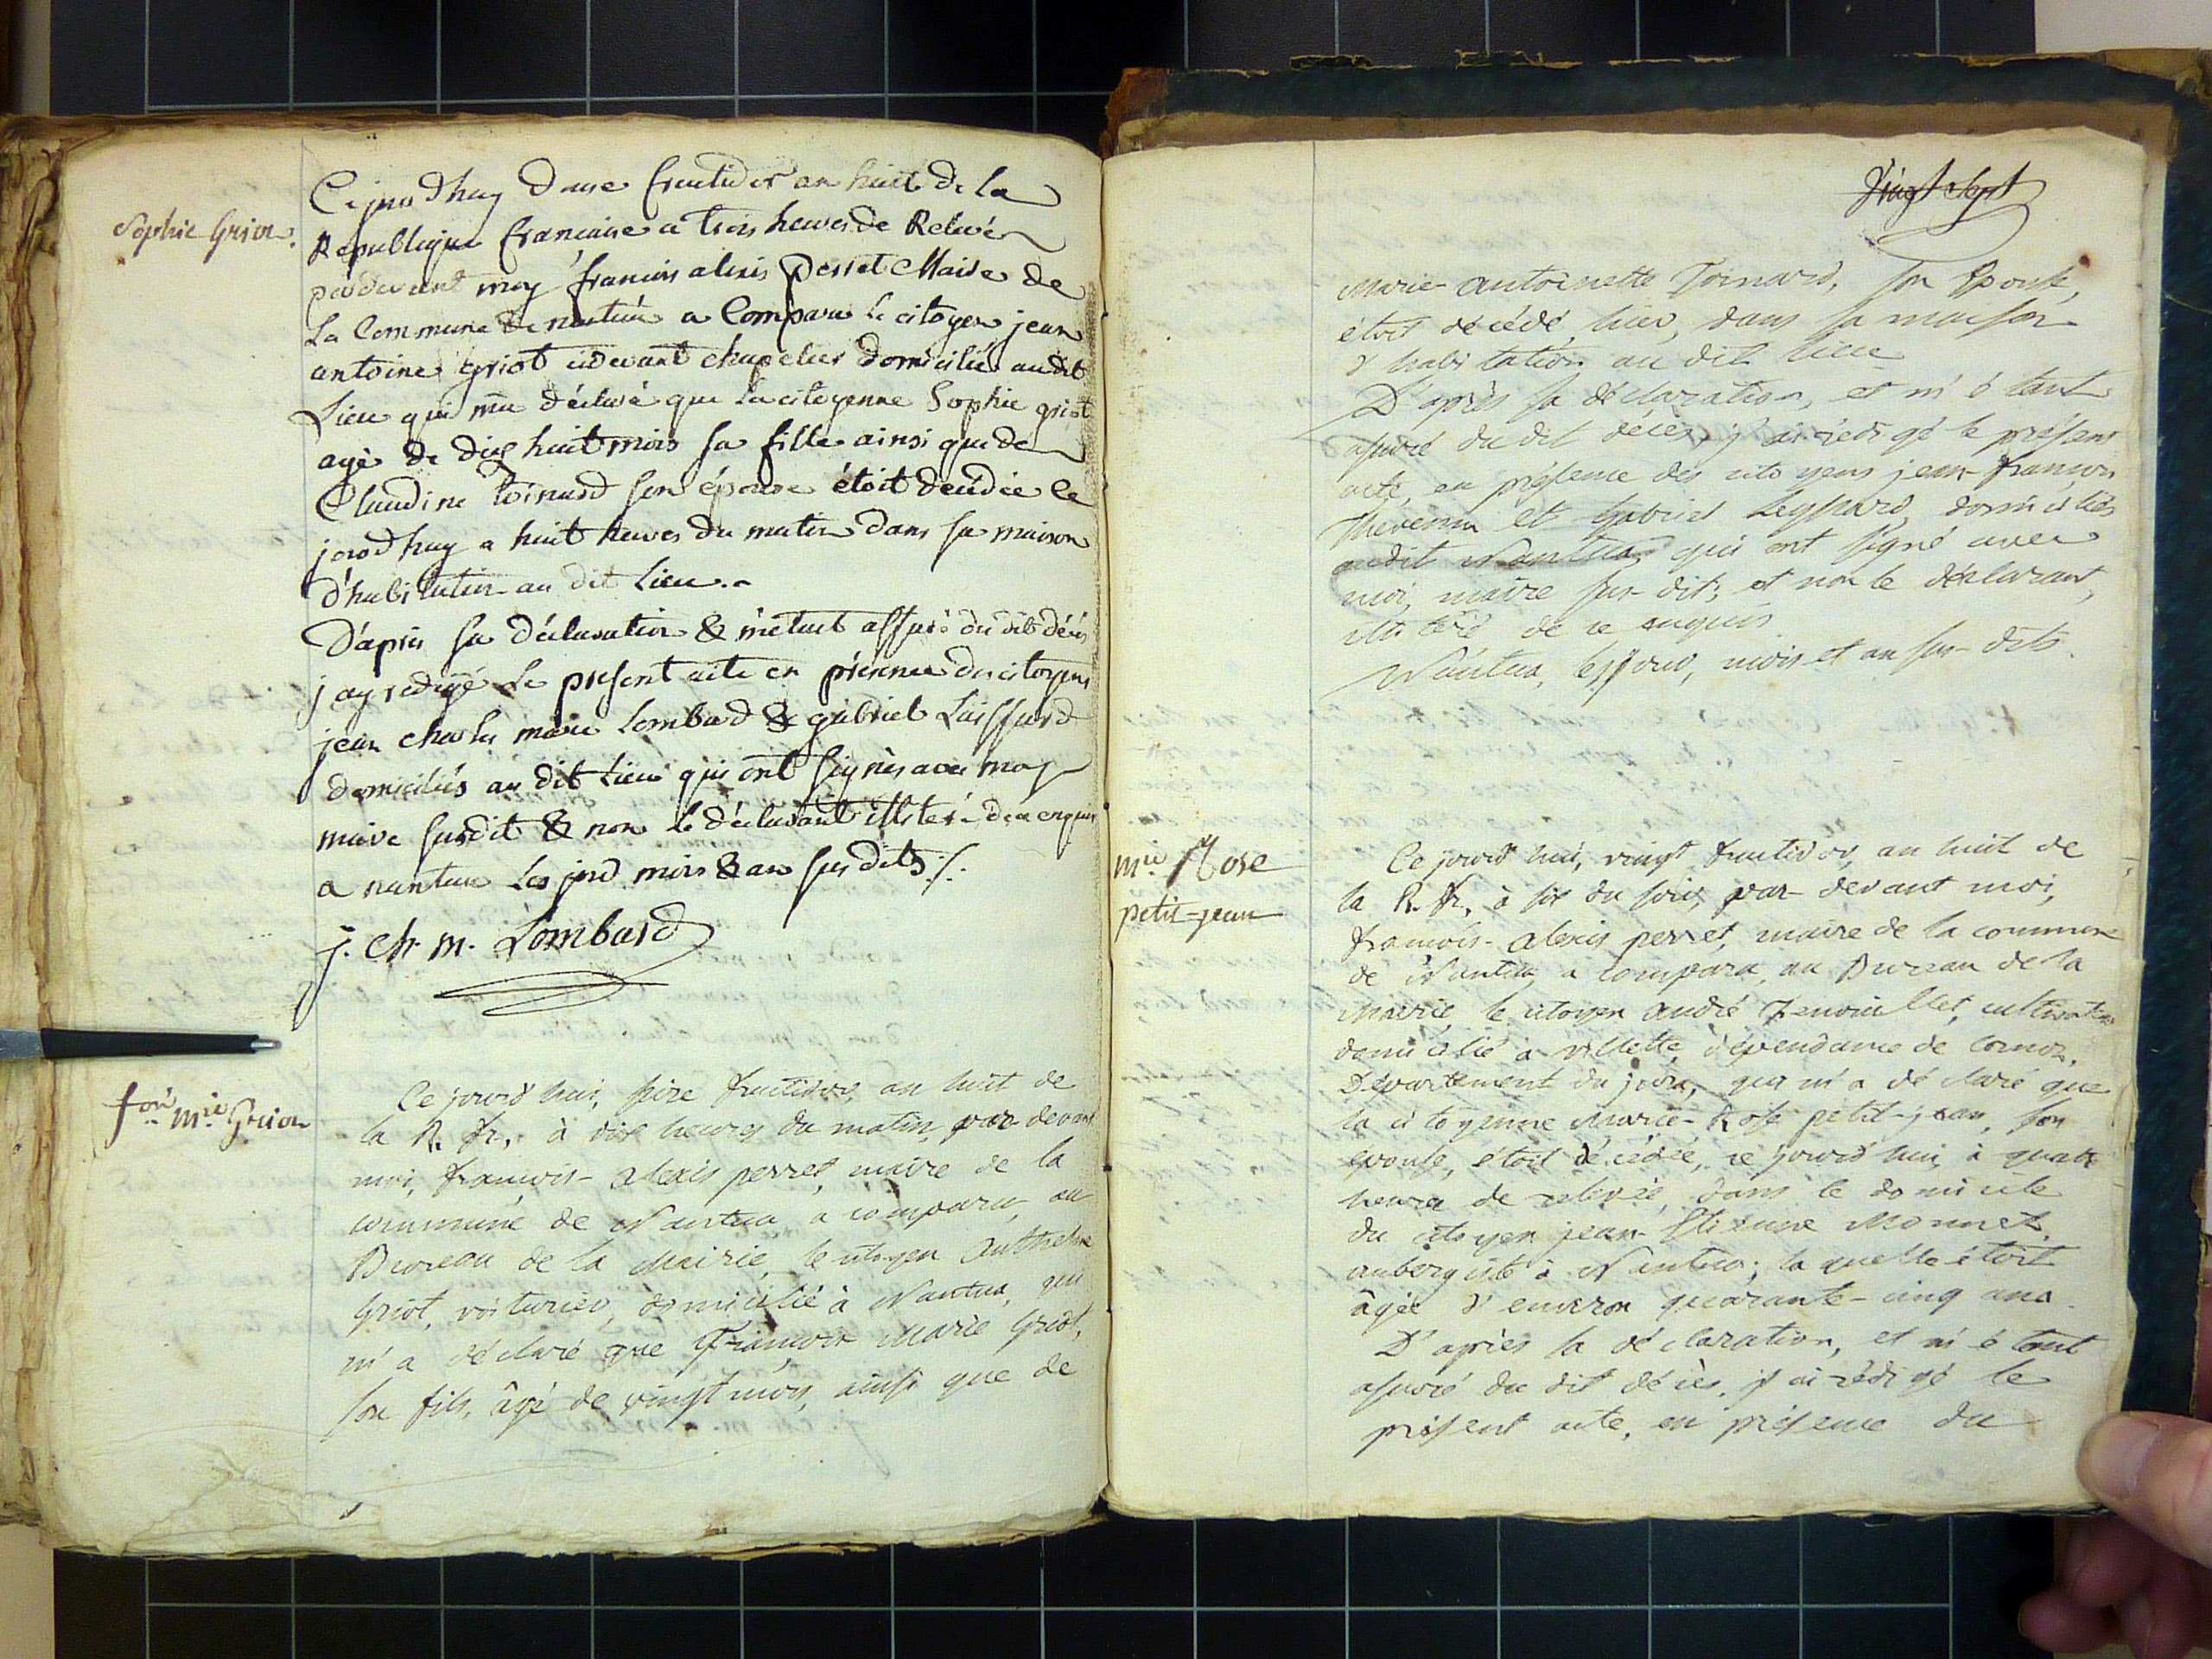 Sophie Griot.
Cejourdhuy douze fructidor an huit de la
Republique francaise a trois heures de Relevé
pardevant moy francois alexis Perret Maire de
La Commune de nantua a Comparu le citoyen jean
antoine griot cidevant chapelier domicilié audit
Lieu qui ma déclaré que la citoyenne Sophie griot
agé de dix huit mois sa fille ainsi que de
Claudine Toinard son épouse étoit decédée ce
jourdhuy a huit heures du matin dans sa maison
d'habitation au dit Lieu.
D'après sa déclaration & m'etant assuré du dit décès
j ay redigé Le present acte en présence du citoyens
jean charles marie Lombard & gabriel Laissard
domiciliés au dit Lieu qui ont signés avec moy
maire susdit & non le déclarant illiteré de ce enquis
a nantua les jour mois & an sus dits
j. ch. m. Lombard
f.on m.ie Griot
Ce jourd'hui, seize fructidor, an huit de
la R. fr., à dix heures du matin, par-devant
moi, françois-alexis perret, maire de la
commune de Nantua, a comparu, au
Bureau de la Mairie, le citoyen Anthelme
Griot, voiturier, domicilié à Nantua, qui
m'a déclaré que François Marie Griot,
son fils, âgé de vingt mois, ainsi que de
Vingt sept
Marie-antoinette Toinard, son Epouse,
étoit décédé, hier, dans sa maison
d'habitation au dit lieu
D'après sa déclaration, et m'étant
assuré du dit décès, j'ai rédigé le présent
acte, en présence des citoyens jean-françois
Thevenin et Gabriel Leyssard, domiciliés
audit Nantua, qui ont signé avec
moi, maire sus-dit; et non le déclarant,
illiteré de ce enquis
Nantua, les jour, mois et an sus-dits.
m.ie Rose
petit-jean
Ce jourd'hui, vingt fructidor, an huit de
la R. fr., à six du soir, par-devant moi,
françois-alexis perret, maire de la commune
de Nantua, a comparu, au Bureau de la
Mairie, le citoyen André, cultivateur
domicilié à villette, dépendance de Cornoz,
Département du jura, qui m'a déclaré que
la citoyenne Marie-Rose petit-jean, son
épouse, étoit décédée, ce jourd'hui, à quatre
heures de relevée, dans le domicile
du citoyen jean-Etienne Monnet,
aubergiste à Nantua; laquelle étoit
âgée d'environ quarante-cinq ans.
D'après sa déclaration, et m'étant
assuré du dit décès, j'ai rédigé le
présent acte, en présence du